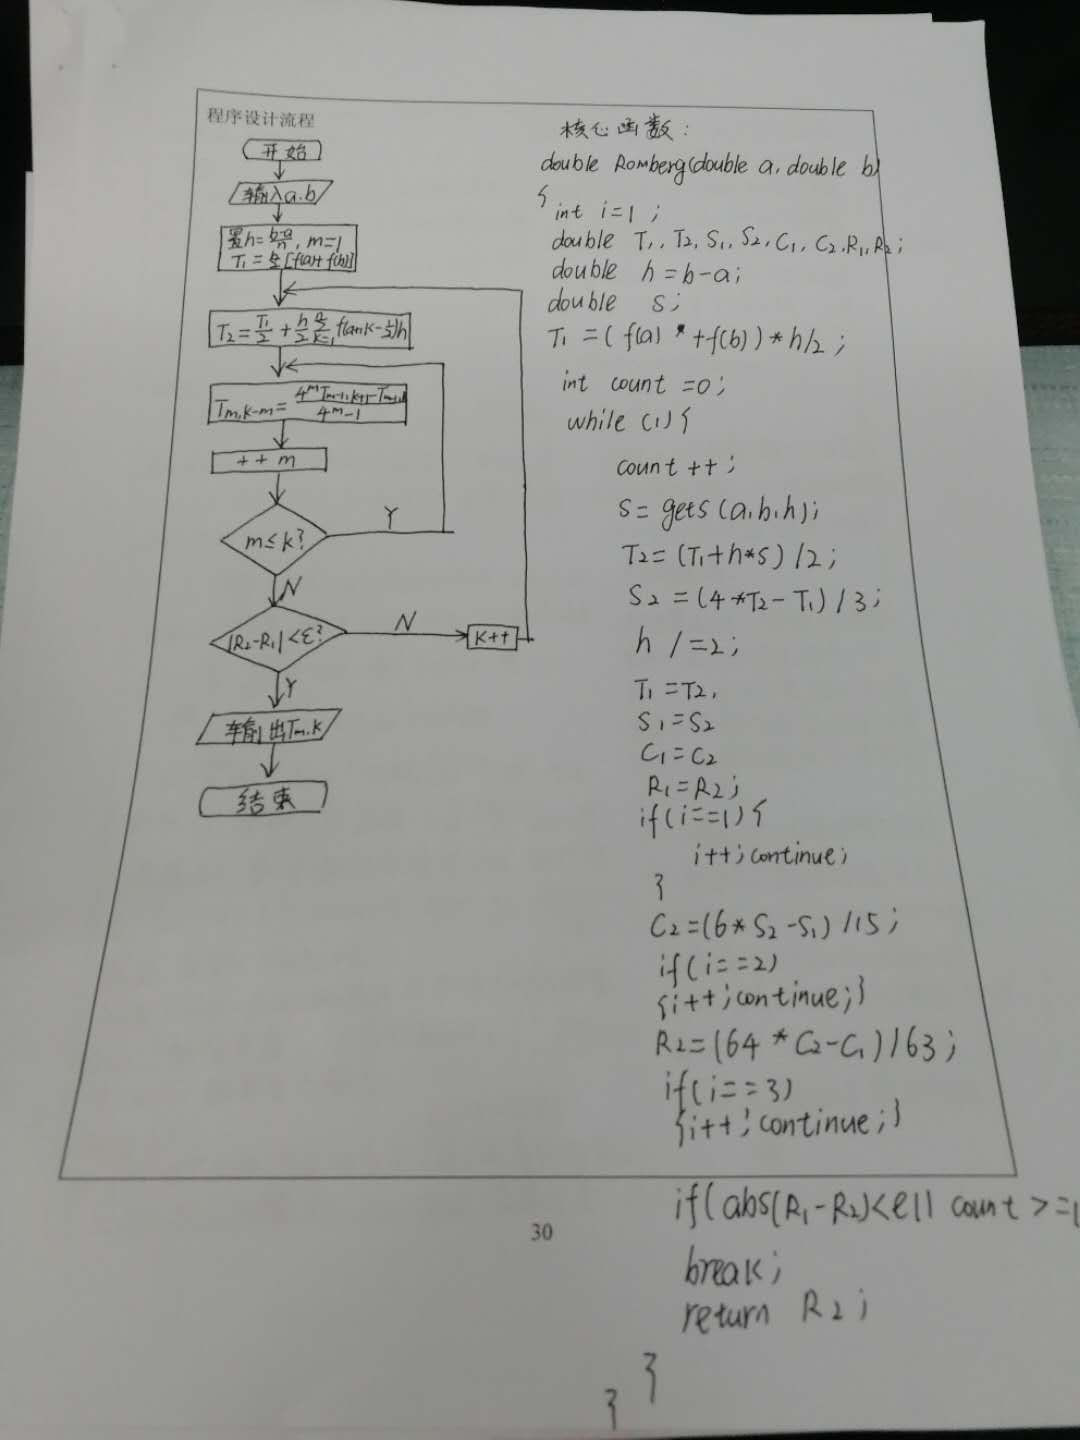 程序设计流程
开始
输入a.b
置h=b-a/n, m=1
T₁=h/2[f(a)+f(b)]
T₂=T₁/2+h/2 Σ f(a+(k-1/2)h
Tm,k-m=4^m Tm-1,k+1-Tm-1,/4^m-1
++m
m≤k?
Y
N
|R₂-R₁|<ε?
N
k++
Y
输出Tm.k
结束
核心函数:
double Romberg(double a, double b)
{
int i=1;
double T₁, T₂, S₁, S₂, C₁, C₂, R₁, R₂;
double h=b-a;
double s;
T₁=(f(a)*+f(b))*h/2;
int count=0;
while(1){
count++;
s=gets(a,b,h);
T₂=(T₁+h*s)/2;
S₂=(4*T₂-T₁)/3;
h/=2;
T₁=T₂,
S₁=S₂
C₁=C₂
R₁=R₂;
if(i==1){
i++;continue;
}
C₂=(6*S₂-S₁)/15;
if(i==2)
{i++;continue;}
R₂=(64*C₂-C₁)/63;
if(i==3)
{i++;continue;}
if(abs(R₁-R₂)<e|| count>=1
break;
return R₂;
}
}
30